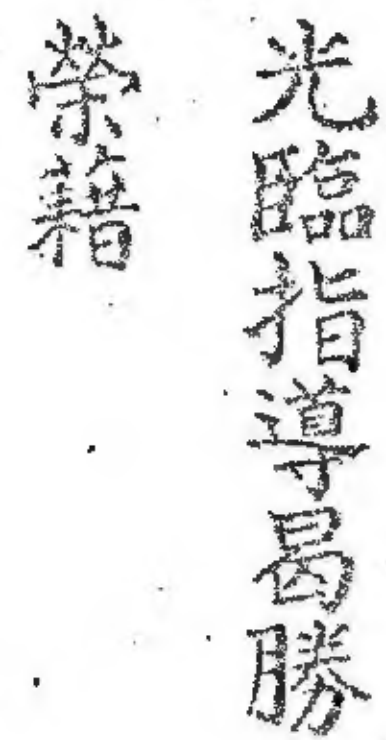 光臨指導曷勝
榮藉